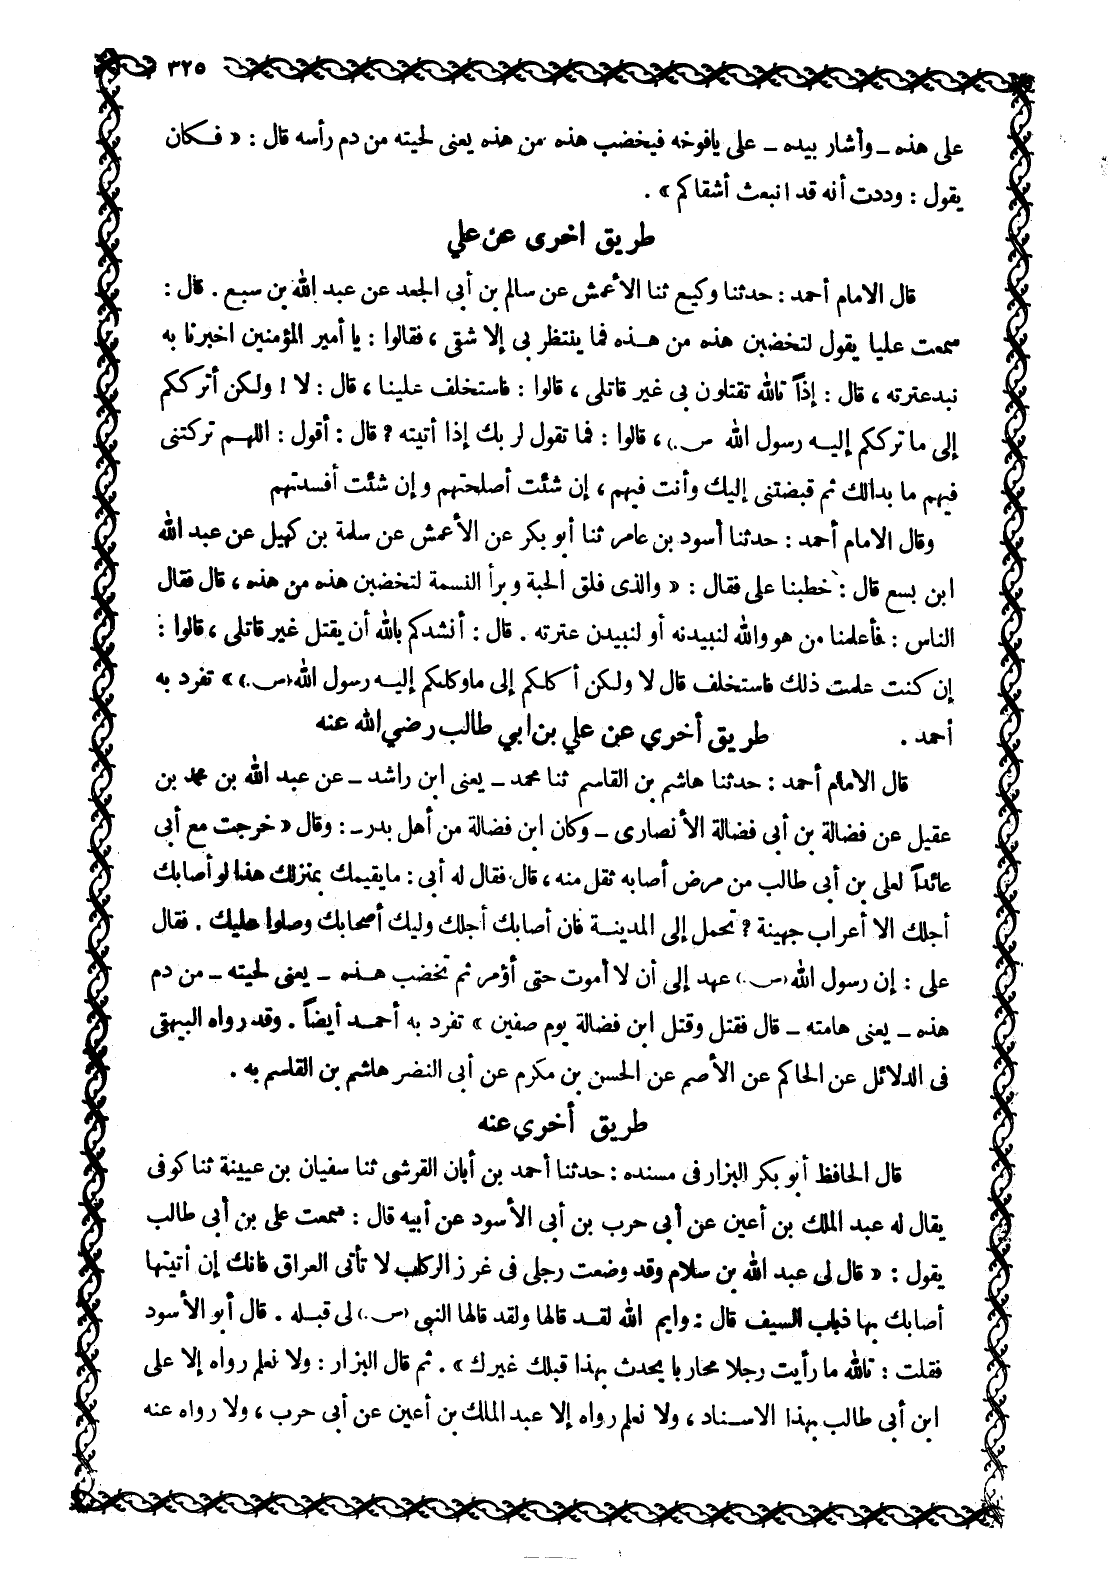 ٣٢٥
على هذه ــ وأشار بيده ــ على يافوخه فيخضب هذه من هذه يعنى لحيته من دم رأسه قال : « فكان
يقول : وددت أنه قد انبعث أشقاكم » .
طريق اخرى عن علي
قال الامام أحمد : حدثنا وكيع ثنا الأعمش عن سالم بن أبى الجعد عن عبد الله بن سبع . قال :
سمعت عليا يقول لتخضبن هذه من هذه فما ينتظر بى إلا شقى ، فقالوا : يا أمير المؤمنين اخبرنا به
نبد عترته ، قال : إذاً تالله تقتلون بى غير قاتلى ، قالوا : فاستخلف علينا ، قال : لا ! ولكن أترككم
إلى ما ترككم إليه رسول الله (ص) ، قالوا : فما تقول لربك إذا أتيته ? قال : أقول : اللهم تركتنى
فيهم ما بدالك ثم قبضتنى إليك وأنت فيهم ، إن شئت أصلحتهم وإن شئت أفسدتهم
وقال الامام أحمد : حدثنا أسود بن عامر ثنا أبو بكر عن الأعمش عن سلمة بن كهيل عن عبد الله
ابن بسع قال : خطبنا على فقال : « والذى فلق الحبة وبرأ النسمة لتخضبن هذه من هذه ، قال فقال
الناس : فأعلمنا من هو والله لنبيدنه أو لنبيدن عترته . قال : أنشدكم بالله أن يقتل غير قاتلى ، قالوا :
إن كنت علمت ذلك فاستخلف قال لا ولكن أكلكم إلى ما وكلكم إليه رسول الله (ص) » تفرد به
أحمد . طريق أخري عن علي بن ابي طالب رضي الله عنه
قال الامام أحمد : حدثنا هاشم بن القاسم ثنا محمد ــ يعنى ابن راشد ــ عن عبد الله بن محمد بن
عقيل عن فضالة بن أبى فضالة الأنصارى ــ وكان ابن فضالة من أهل بدر ــ : وقال « خرجت مع أبى
عائداً لعلى بن أبى طالب من مرض أصابه ثقل منه ، قال فقال له أبى : ما يقيمك بمنزلك هذا لو أصابك
أجلك الا أعراب جهينة ? تحمل إلى المدينة فان أصابك أجلك وليك أصحابك وصلوا عليك . فقال
على : إن رسول الله (ص) عهد إلى أن لا أموت حتى أؤمر ثم تخضب هذه ــ يعنى لحيته ــ من دم
هذه ــ يعنى هامته ــ قال فقتل وقتل ابن فضالة يوم صفين » تفرد به أحمد أيضاً . وقد رواه البيهقى
فى الدلائل عن الحاكم عن الأصم عن الحسن بن مكرم عن أبى النضر هاشم بن القاسم به .
طريق أخري عنه
قال الحافظ أبو بكر البزار فى مسنده : حدثنا أحمد بن أبان القرشى ثنا سفيان بن عيينة ثنا كوفى
يقال له عبد الملك بن أعين عن أبى حرب بن أبى الأسود عن أبيه قال : سمعت على بن أبى طالب
يقول : « قال لى عبد الله بن سلام وقد وضعت رجلى فى غرز الركاب لا تأتى العراق فانك إن أتيتها
أصابك بها ذباب السيف قال : وايم الله لقد قالها ولقد قالها النبى (ص) لى قبله . قال أبو الأسود
فقلت : تالله ما رأيت رجلا محاربا يحدث بهذا قبلك غيرك » . ثم قال البزار : ولا نعلم رواه إلا على
ابن أبى طالب بهذا الاسناد ، ولا نعلم رواه إلا عبد الملك بن أعين عن أبى حرب ، ولا رواه عنه